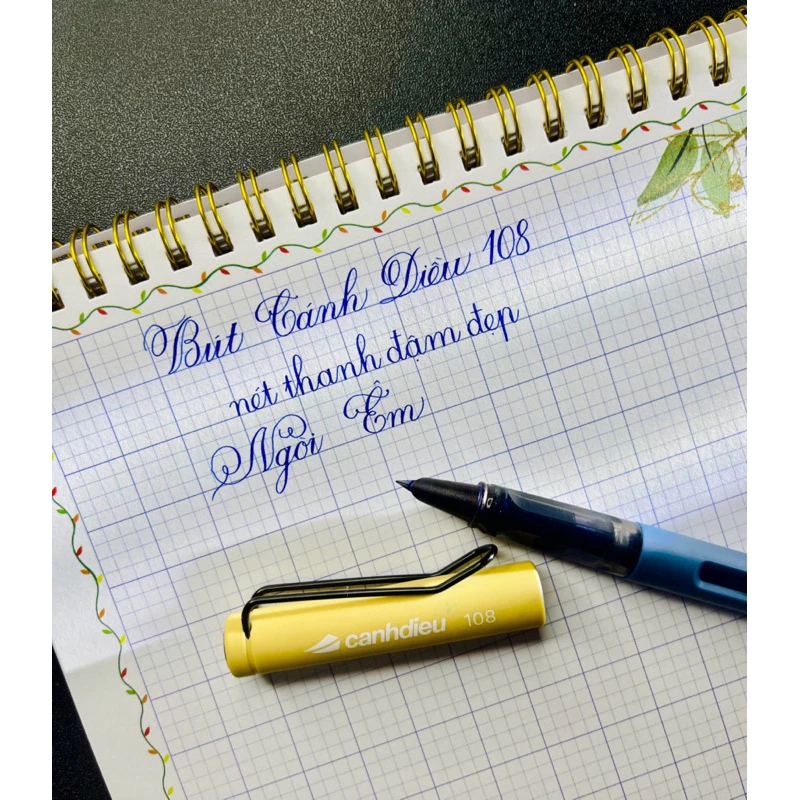 Bút Cánh Diều 108
nét thanh đậm đẹp
Ngòi Êm
canhdieu 108